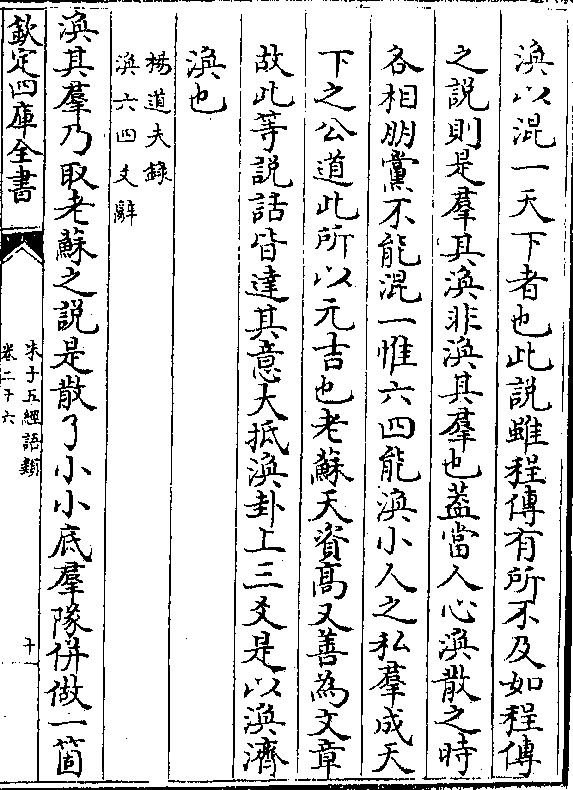 渙以混一天下者也此說雖程傳有所不及如程傳
之說則是羣其渙非渙其羣也葢當人心渙散之時
各相朋黨不能混一惟六四能渙小人之私羣成天
下之公道此所以元吉也老蘇天資高又善為文章
故此等說話皆達其意大抵渙卦上三爻是以渙濟
渙也
楊道夫錄
渙六四爻辭
渙其羣乃取老蘇之說是散了小小底羣隊併做一箇
欽定四庫全書
朱子五經語類
卷二十六
十